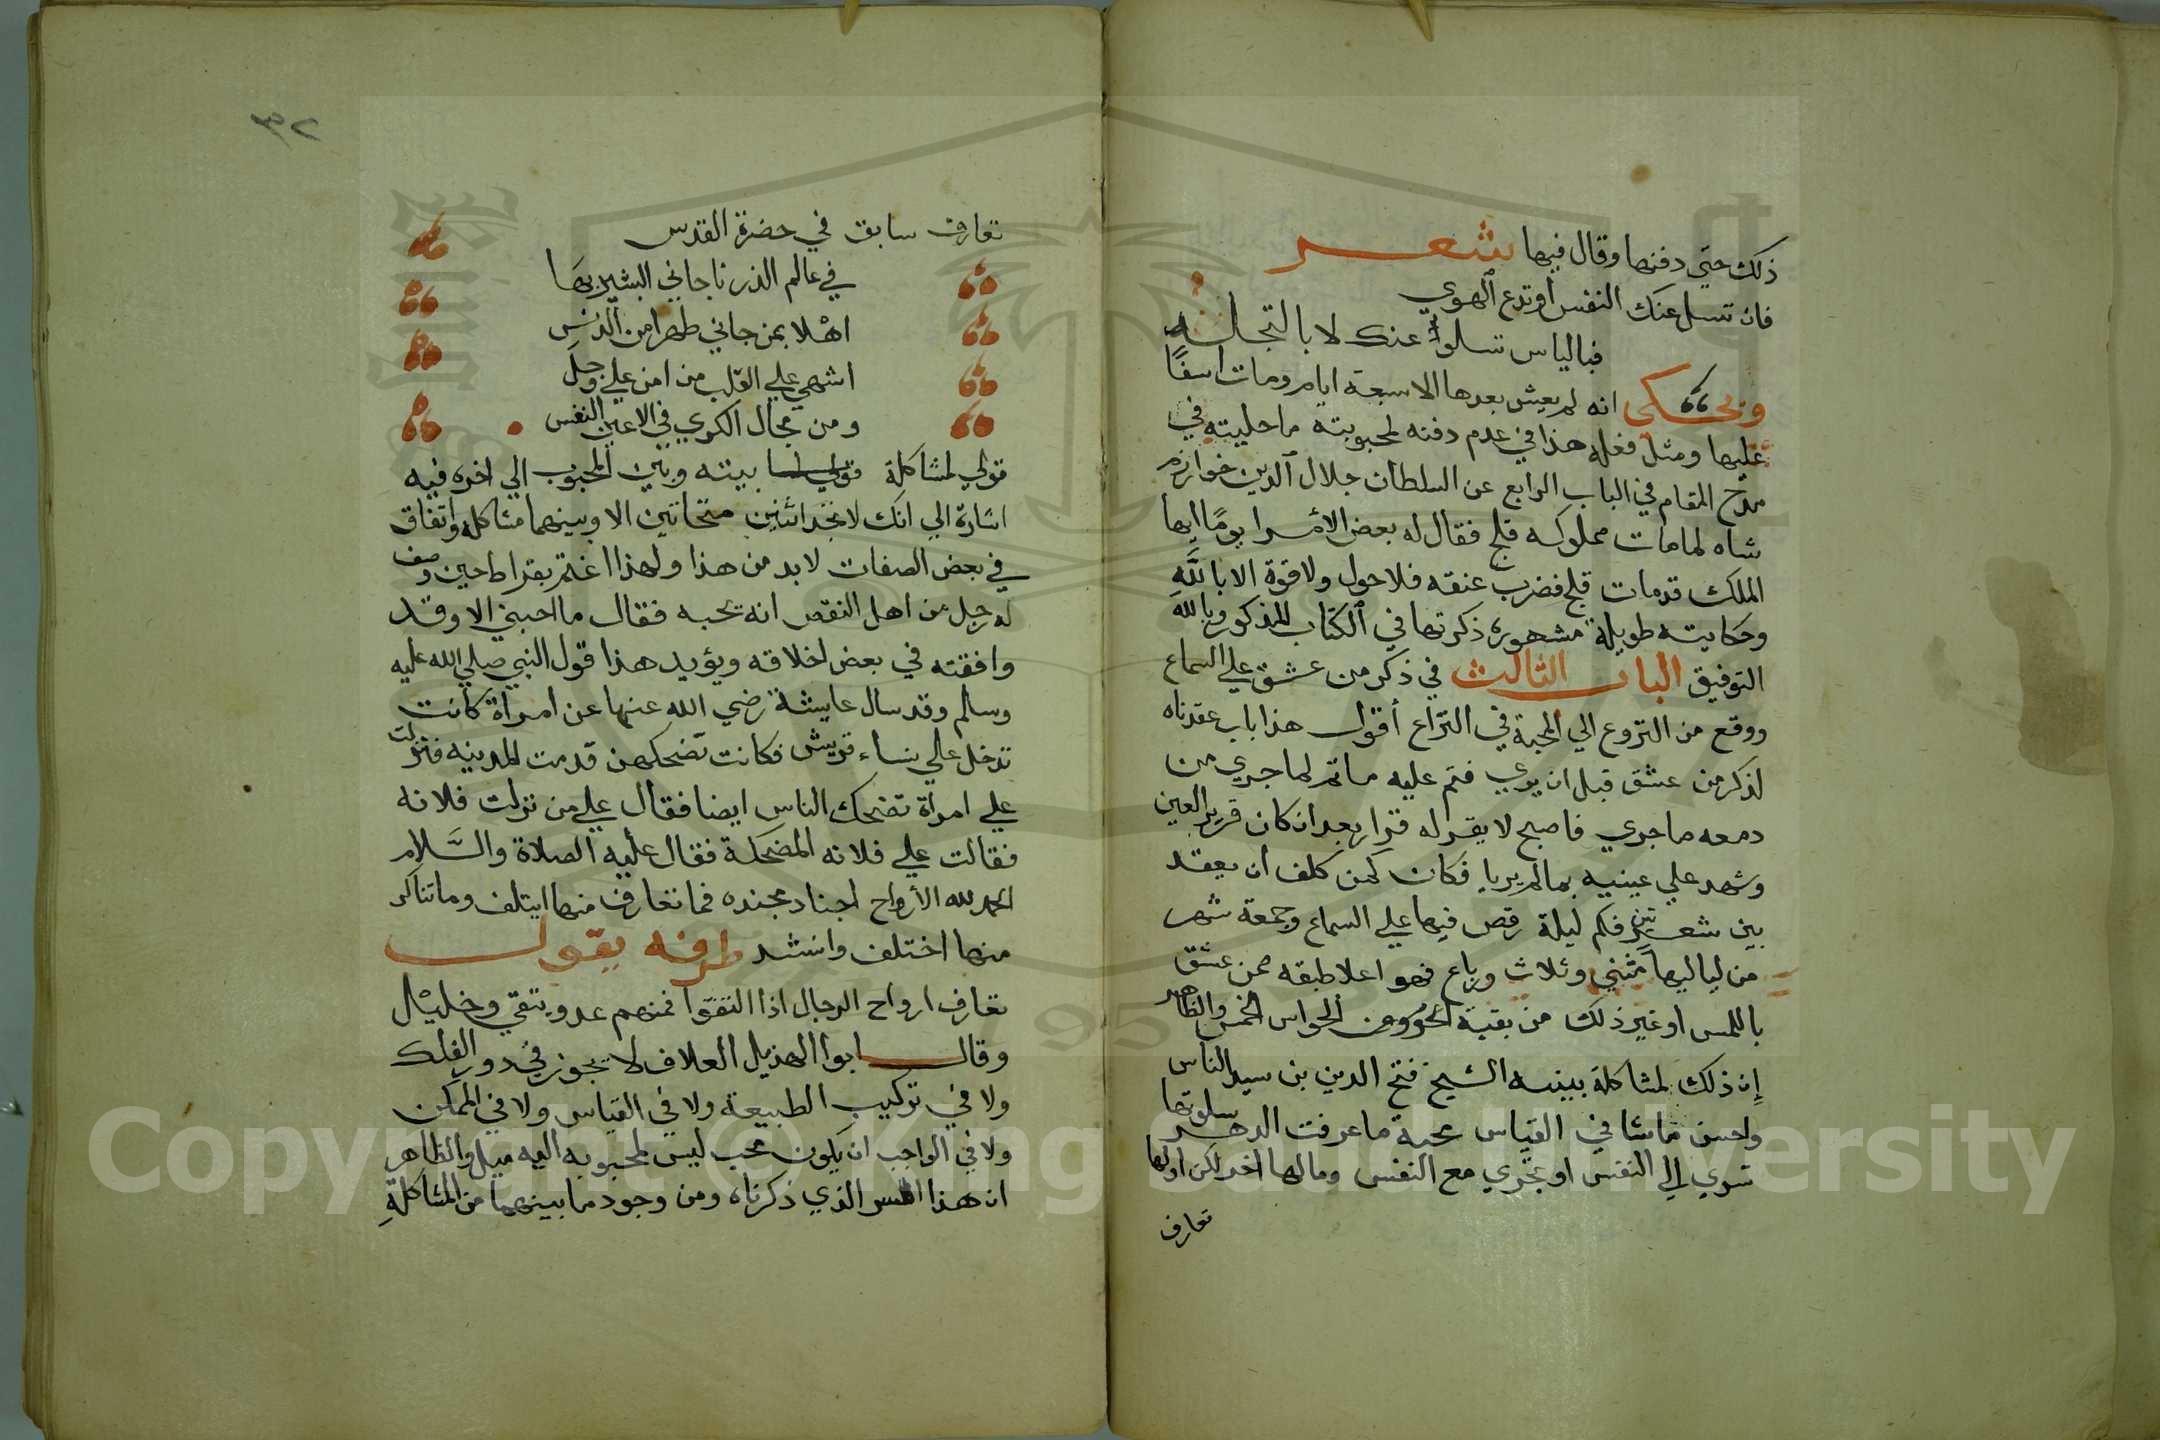 ذلك حتي دفنها وقال فيها شعر
فان تسل عنك النفس او تدع الهوي
فبالياس تسلوا عنك لا بالتجلد
ويحكي انه لم يعيش بعدها الا سبعة ايام ومات اسفًا
عليها ومثل فعله هذا في عدم دفنه لمحبوبته ما حليته في
مرح المقام في الباب الرابع عن السلطان جلال الدين خوارزم
شاه لما مات مملوكه قلج فقال له بعض الأمرا يومًا ايها
الملك قد مات قلج فضرب عنقه فلا حول ولا قوة الا بالله
وحكايته طويلة مشهوره ذكرتها في الكتاب المذكور وبالله
التوفيق الباب الثالث في ذكر من عشق علي السماع
ووقع من النزوع الي المحبة في النزاع أقول هذا باب عقدناه
لذكر من عشق قبل ان يري فتم عليه ما تم لما جري من
دمعه ما جري فاصبح لا يقر له قرار بعد ان كان قرير العين
وشهد علي عينيه بما لم يريا فكان كمن كلف ان يعقد
بين شعيرتين فكم ليلة رقص فيها علي السماع وجمعة شهر
من لياليها مثني وثلاث ورباع فهو اعلا طبقه ممن عشق
باللمس او غير ذلك من بقية الحواس الخمس والظاهر
إن ذلك لمشاكلة بينه الشيخ فتح الدين بن سيد الناس
واحسن ما شا في القياس محبة ما عرفت الدهر سلوتها
تسري الي النفس او تجري مع النفس وما لها اخر لكن اولها
تعارف
٣٢
تعارف سابق في حضرة القدس
في عالم الذر ناجاني البشير بها
اهْلا بمن جاني طهرا من الدنس
اشهي علي القلب من امن علي وجل
ومن مجال الكري في الاعين النفس
قولي لمشاكلة قولي لما بيته وبين المحبوب الي اخره فيه
اشارة الي انك لا تجد اثنين متحابين الا وبينهما مشاكله واتفاق
في بعض الصفات لا بد من هذا ولهذا اغتم بقراط حين وصف
له رجل من اهل النقص انه يحبه فقال ما احبني الا وقد
وافقته في بعض اخلاقه ويؤيد هذا قول النبي صلي الله عليه
وسلم وقد سال عايشة رضي الله عنها عن امرأة كانت
تدخل علي نساء قريش فكانت تضحكهن قدمت المدينه فنزلت
علي امرأة تضحك الناس ايضا فقال علي من نزلت فلانه
فقالت علي فلانه المضحكة فقال عليه الصلاة والسَّلام
الحمد لله الأرواح اجناد مجنده فما تعارف منها ايتلف وما تناكر
منها اختلف وانشد طرفه يقول
تعارف ارواح الرجال اذا التقوا فمنهم عدو يتقي وخليل
وقال ابوا الهذيل العلاف لا يجوز في دور الفلك
ولا في تركيب الطبيعة ولا في القياس ولا في الممكن
ولا في الواجب ان يكون محب ليس لمحبوبه اليه ميل والظاهر
ان هذا الذي ذكرناه ومن وجود ما بينهما من المشاكلة
Copyright © King Saud University